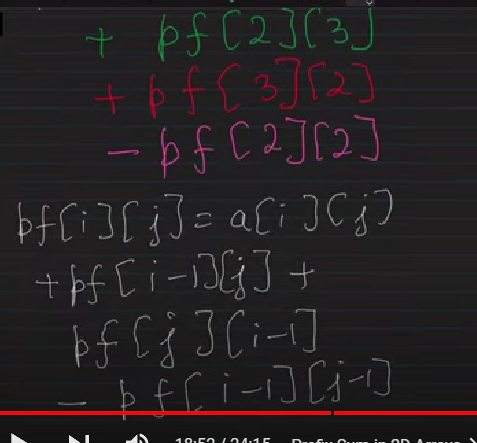 + pf[2][3]
+ pf[3][2]
- pf[2][2]
pf[i][j] = a[i][j)
+pf[i-1][j] +
pf[j][i-1]
- pf[i-1][j-1]
18:52 / 24:15
Prefix Sum in 2D Arrays